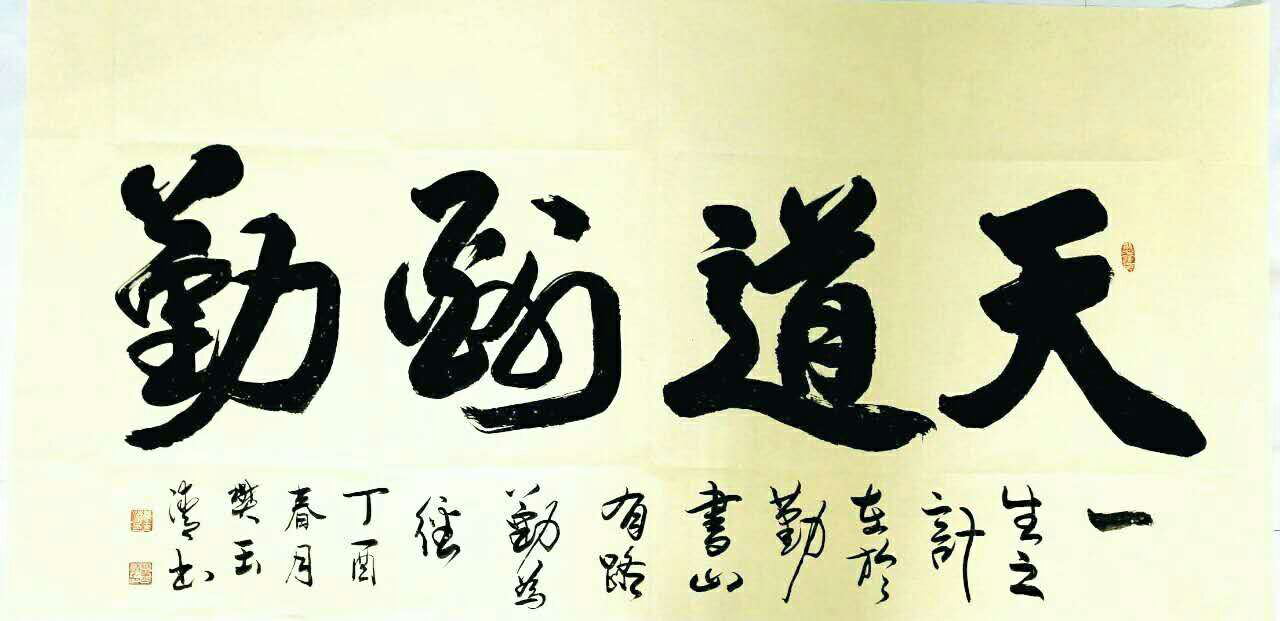 天道酬勤
一
生之
計
在於
勤
書山
有路
勤為
徑
丁酉
春月
樊玉
清书